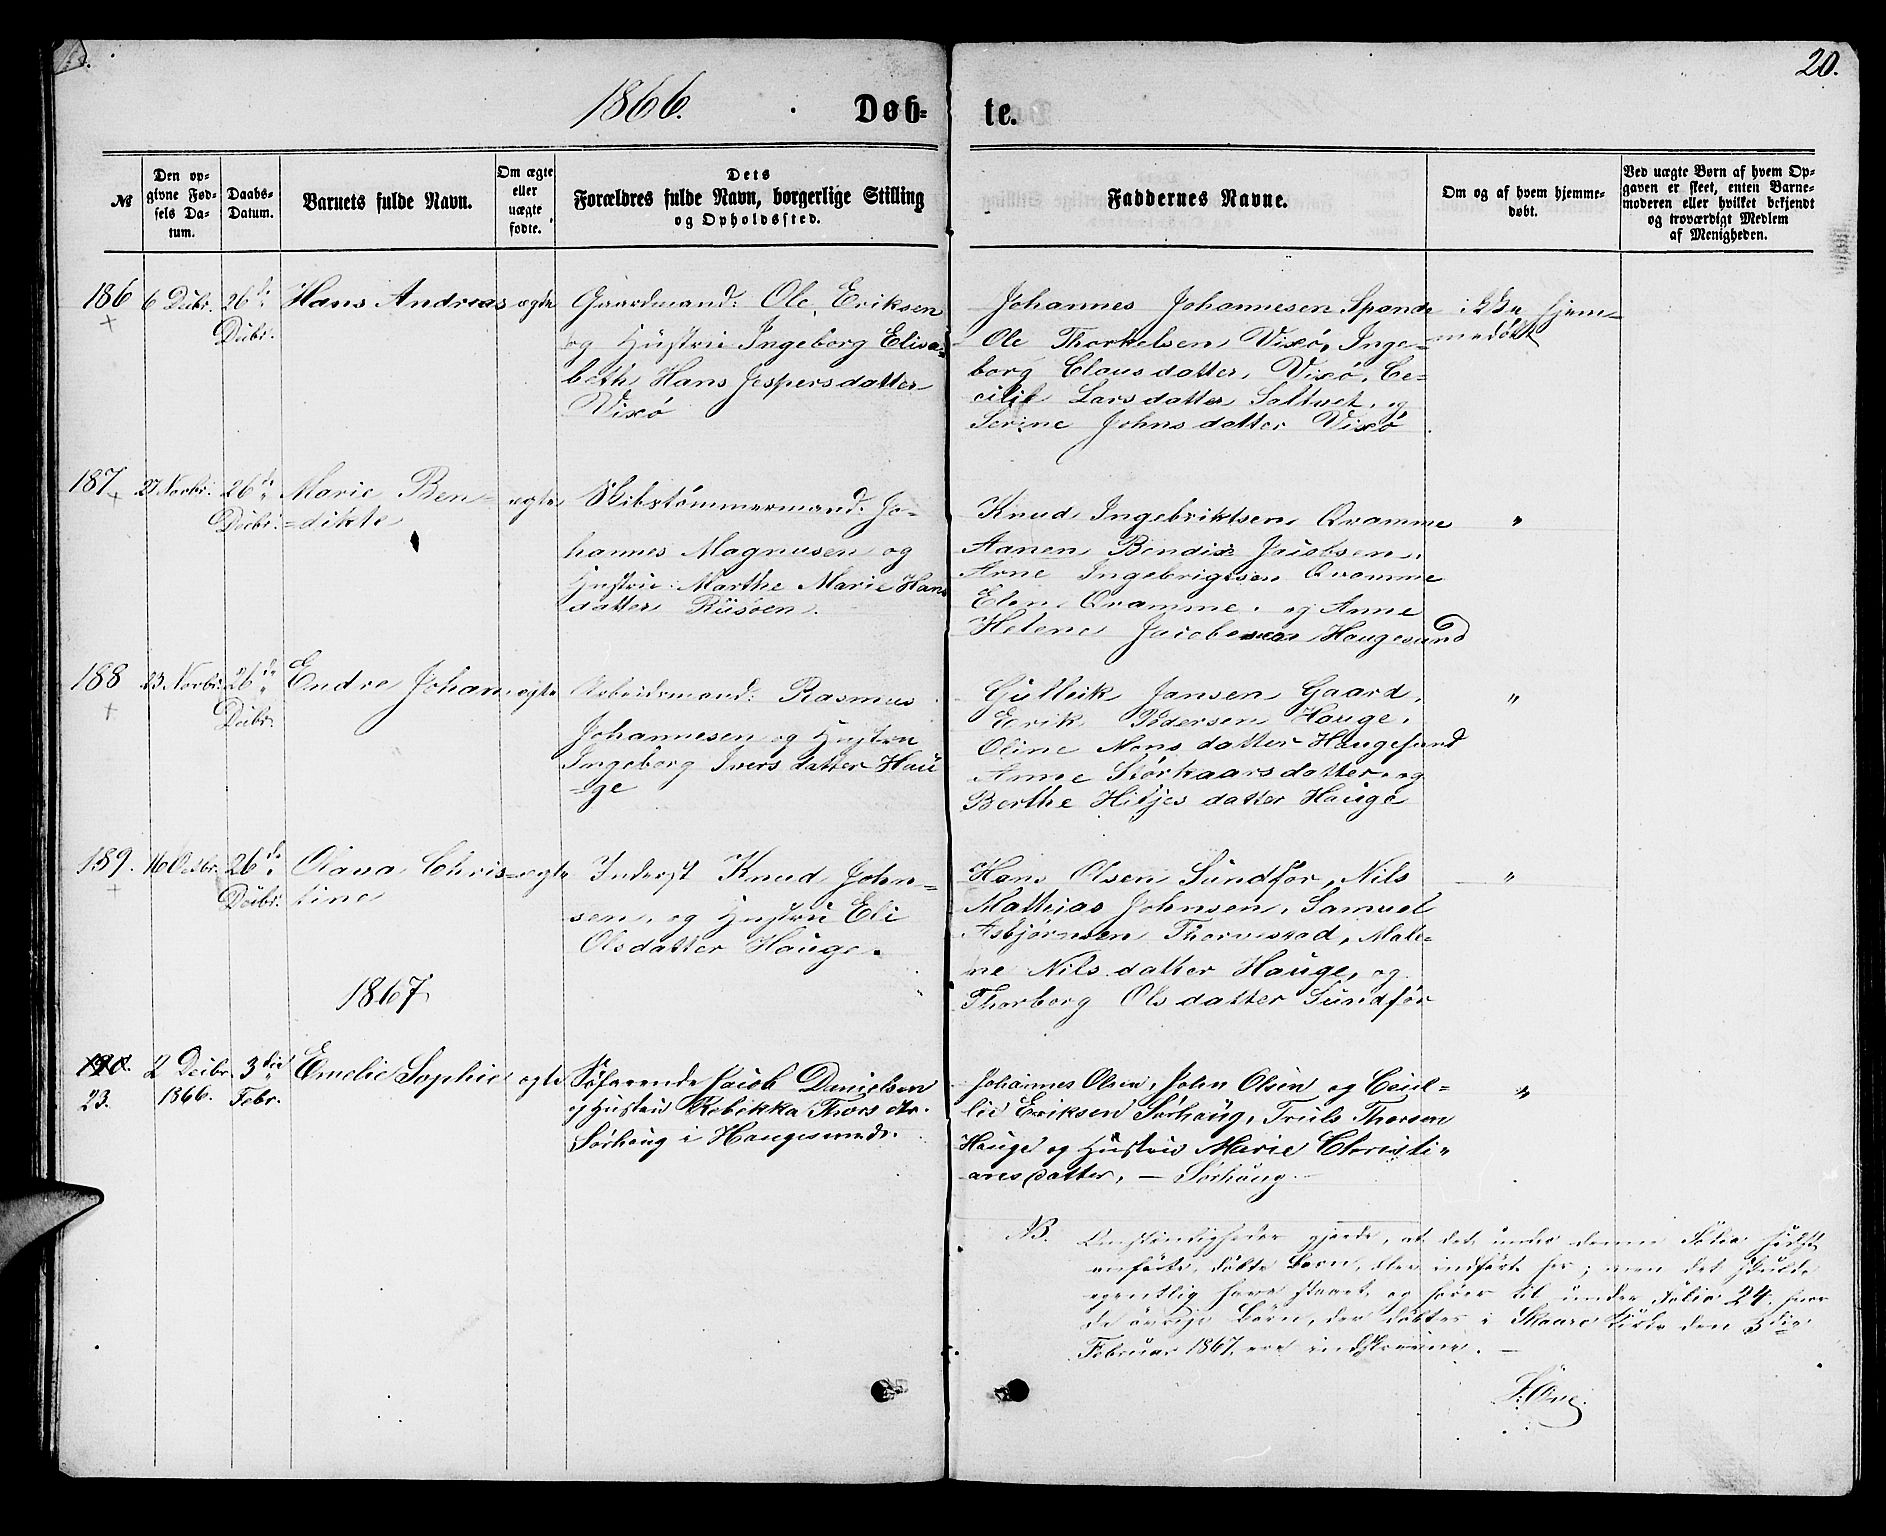 20.
1866. Døb- te.
№
Den opgivne Fødsels Datum.
Daabs-Datum.
Barnets fulde Navn.
Om ægte eller uægte fødte.
Dets Forældres fulde Navn, borgerlige Stilling og Opholdssted.
Faddernes Navne.
Om og af hvem hjemmedøbt.
Ved uægte Børn af hvem Opgaven er skeet, enten Barnemoderen eller hvilket bekjendt og troværdigt Medlem af Menigheden.
186
6 Decbr.
26 de
Decbr.
Hans Andreas
ægte
Gaardmand: Ole Eriksen
og Hustru Ingeborg Elisa-
beth Hans Jespersdatter
Vixø
Johannes Johannesen Spande
Ole Thorkelsen Vixø, Inge-
borg Clausdatter, Vixø, Ce-
cilie Larsdatter Saltvet, og
Serine Johnsdatter Vixø
ikke hjem-
medøbt
187
27 Novbr.
26 de
Decbr.
Marie Ben-
=dikte
ægte
Skibstømmermand: Jo-
hannes Magnusen og
Hustru: Marthe Marie Hans
datter Risøen.
Knud Ingebriktsen Qvamme
Aanen Bendix Jacobsen,
Arne Ingebrigtsen Qvamme
Elen Qvamme, og Anne
Helene Jacobsen Haugesund
"
188
23 Novbr.
26 de
Decbr.
Endre Johan
ægte
Arbeidsmand: Rasmus
Johannesen og Hustru
Ingeborg Iversdatter Hau
=ge
Gulleik Jansen Gaard,
Eerik Pedersen Hauge,
Oline Monsdatter Haugesund
Anne Storkaarsdatter, og
Berthe Hitjesdatter Hauge
"
189.
16 Octbr.
26 de
Decbr.
Olana Chris-
tine
ægte
Inderst Knud John-
sen, og Hustru Eli
Olsdatter Hauge.
Hans Olsen Sundfør, Nils
Mathias Johnsen, Samuel
Asbjørnsen Thorvestad, Male-
ne Nilsdatter Hauge, og
Thorborg Olsdatter Sundfør
"
1867
190.
23.
2 Decbr.
1866.
3 die
Febr.
Emelie Sophie
ægte
Søfarende Jacob Danielsen
og Hustru Rebekka Thorsdtr.
Sørhaug i Haugesund.
Johannes Olsen, John Olsen og Cecil-
lie Eriksen Sørhaug, Truls Thorsen
Hauge og Hustru Marie Christi-
anesdatter, — Sørhaug
"
NB. Omstændigheder gjorde, at det under denne Folio sidst
anførte, døbte Barn, blev indført her; men det skulde
egentlig have staaet og hører til under Folio 24. hvor
de øvrige Børn, der døbtes i Skaare Kirke den 3 die
Februar 1867, ere indskrevne. —